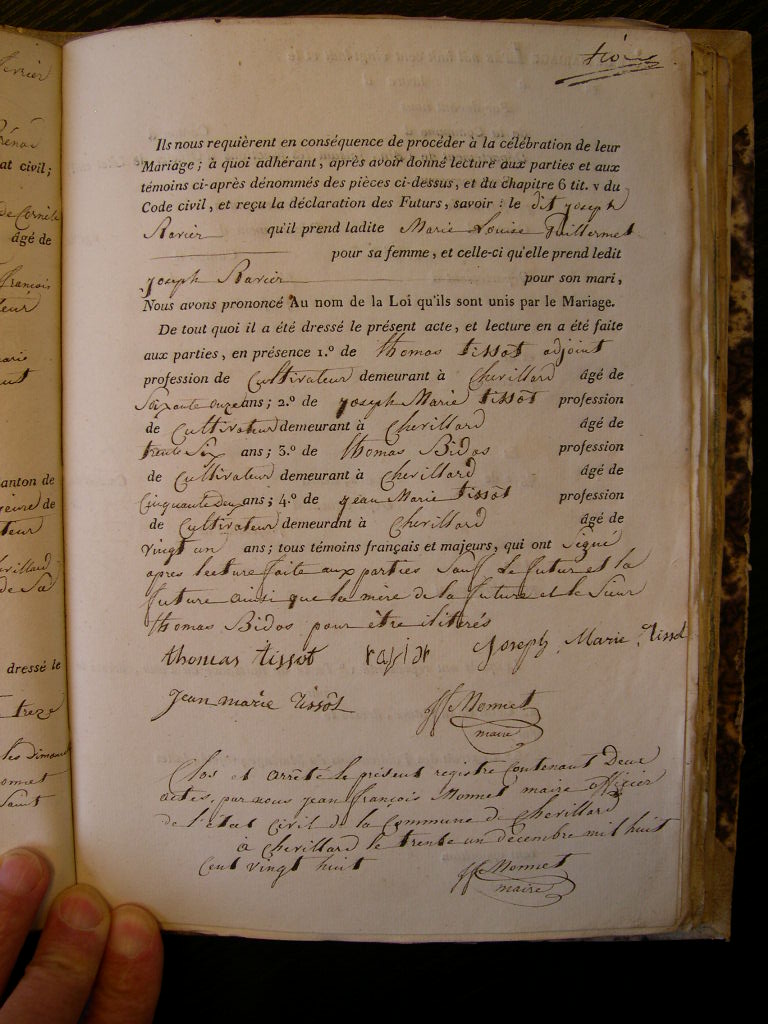 trois
Ils nous requièrent en conséquence de procéder à la célébration de leur
Mariage ; à quoi adhérant, après avoir donné lecture aux parties et aux
témoins ci-après dénommés des pièces ci-dessus, et du chapitre 6 tit. v du
Code civil, et reçu la déclaration des Futurs, savoir : le dit joseph
Ravier qu'il prend ladite Marie Louise Guillermet
pour sa femme, et celle-ci qu'elle prend ledit
joseph Ravier pour son mari,
Nous avons prononcé Au nom de la Loi qu'ils sont unis par le Mariage.
De tout quoi il a été dressé le présent acte, et lecture en a été faite
aux parties, en présence 1.º de thomas tissot adjoint
profession de Cultivateur demeurant à Chevillard âgé de
Soixante onze ans ; 2.º de joseph Marie tissot profession
de Cultivateur demeurant à Chevillard âgé de
trente Six ans ; 3.º de thomas Bidos profession
de Cultivateur demeurant à Chevillard âgé de
Cinquante deux ans ; 4.º de jean Marie tissot profession
de Cultivateur demeurant à Chevillard âgé de
vingt un ans ; tous témoins français et majeurs, qui ont Signé
apres lecture faite aux parties Sauf le futur et la
future ainsi que la mère de la future et le Sieur
thomas Bidos pour être iliterés
thomas tissot ravier joseph Marie Tissot
jean marie tissot Monnet
maire
Clos et arrêté le présent registre Contenant Deux
actes, par nous jean françois Monnet maire officier
de l'état Civil de la Commune de Chevillard
à Chevillard le trente un decembre mil huit
Cent vingt huit Monnet
maire
février
at civil ;
de Corneille
âgé de
françois
marie
anton de
de
dressé le
treze
Saint